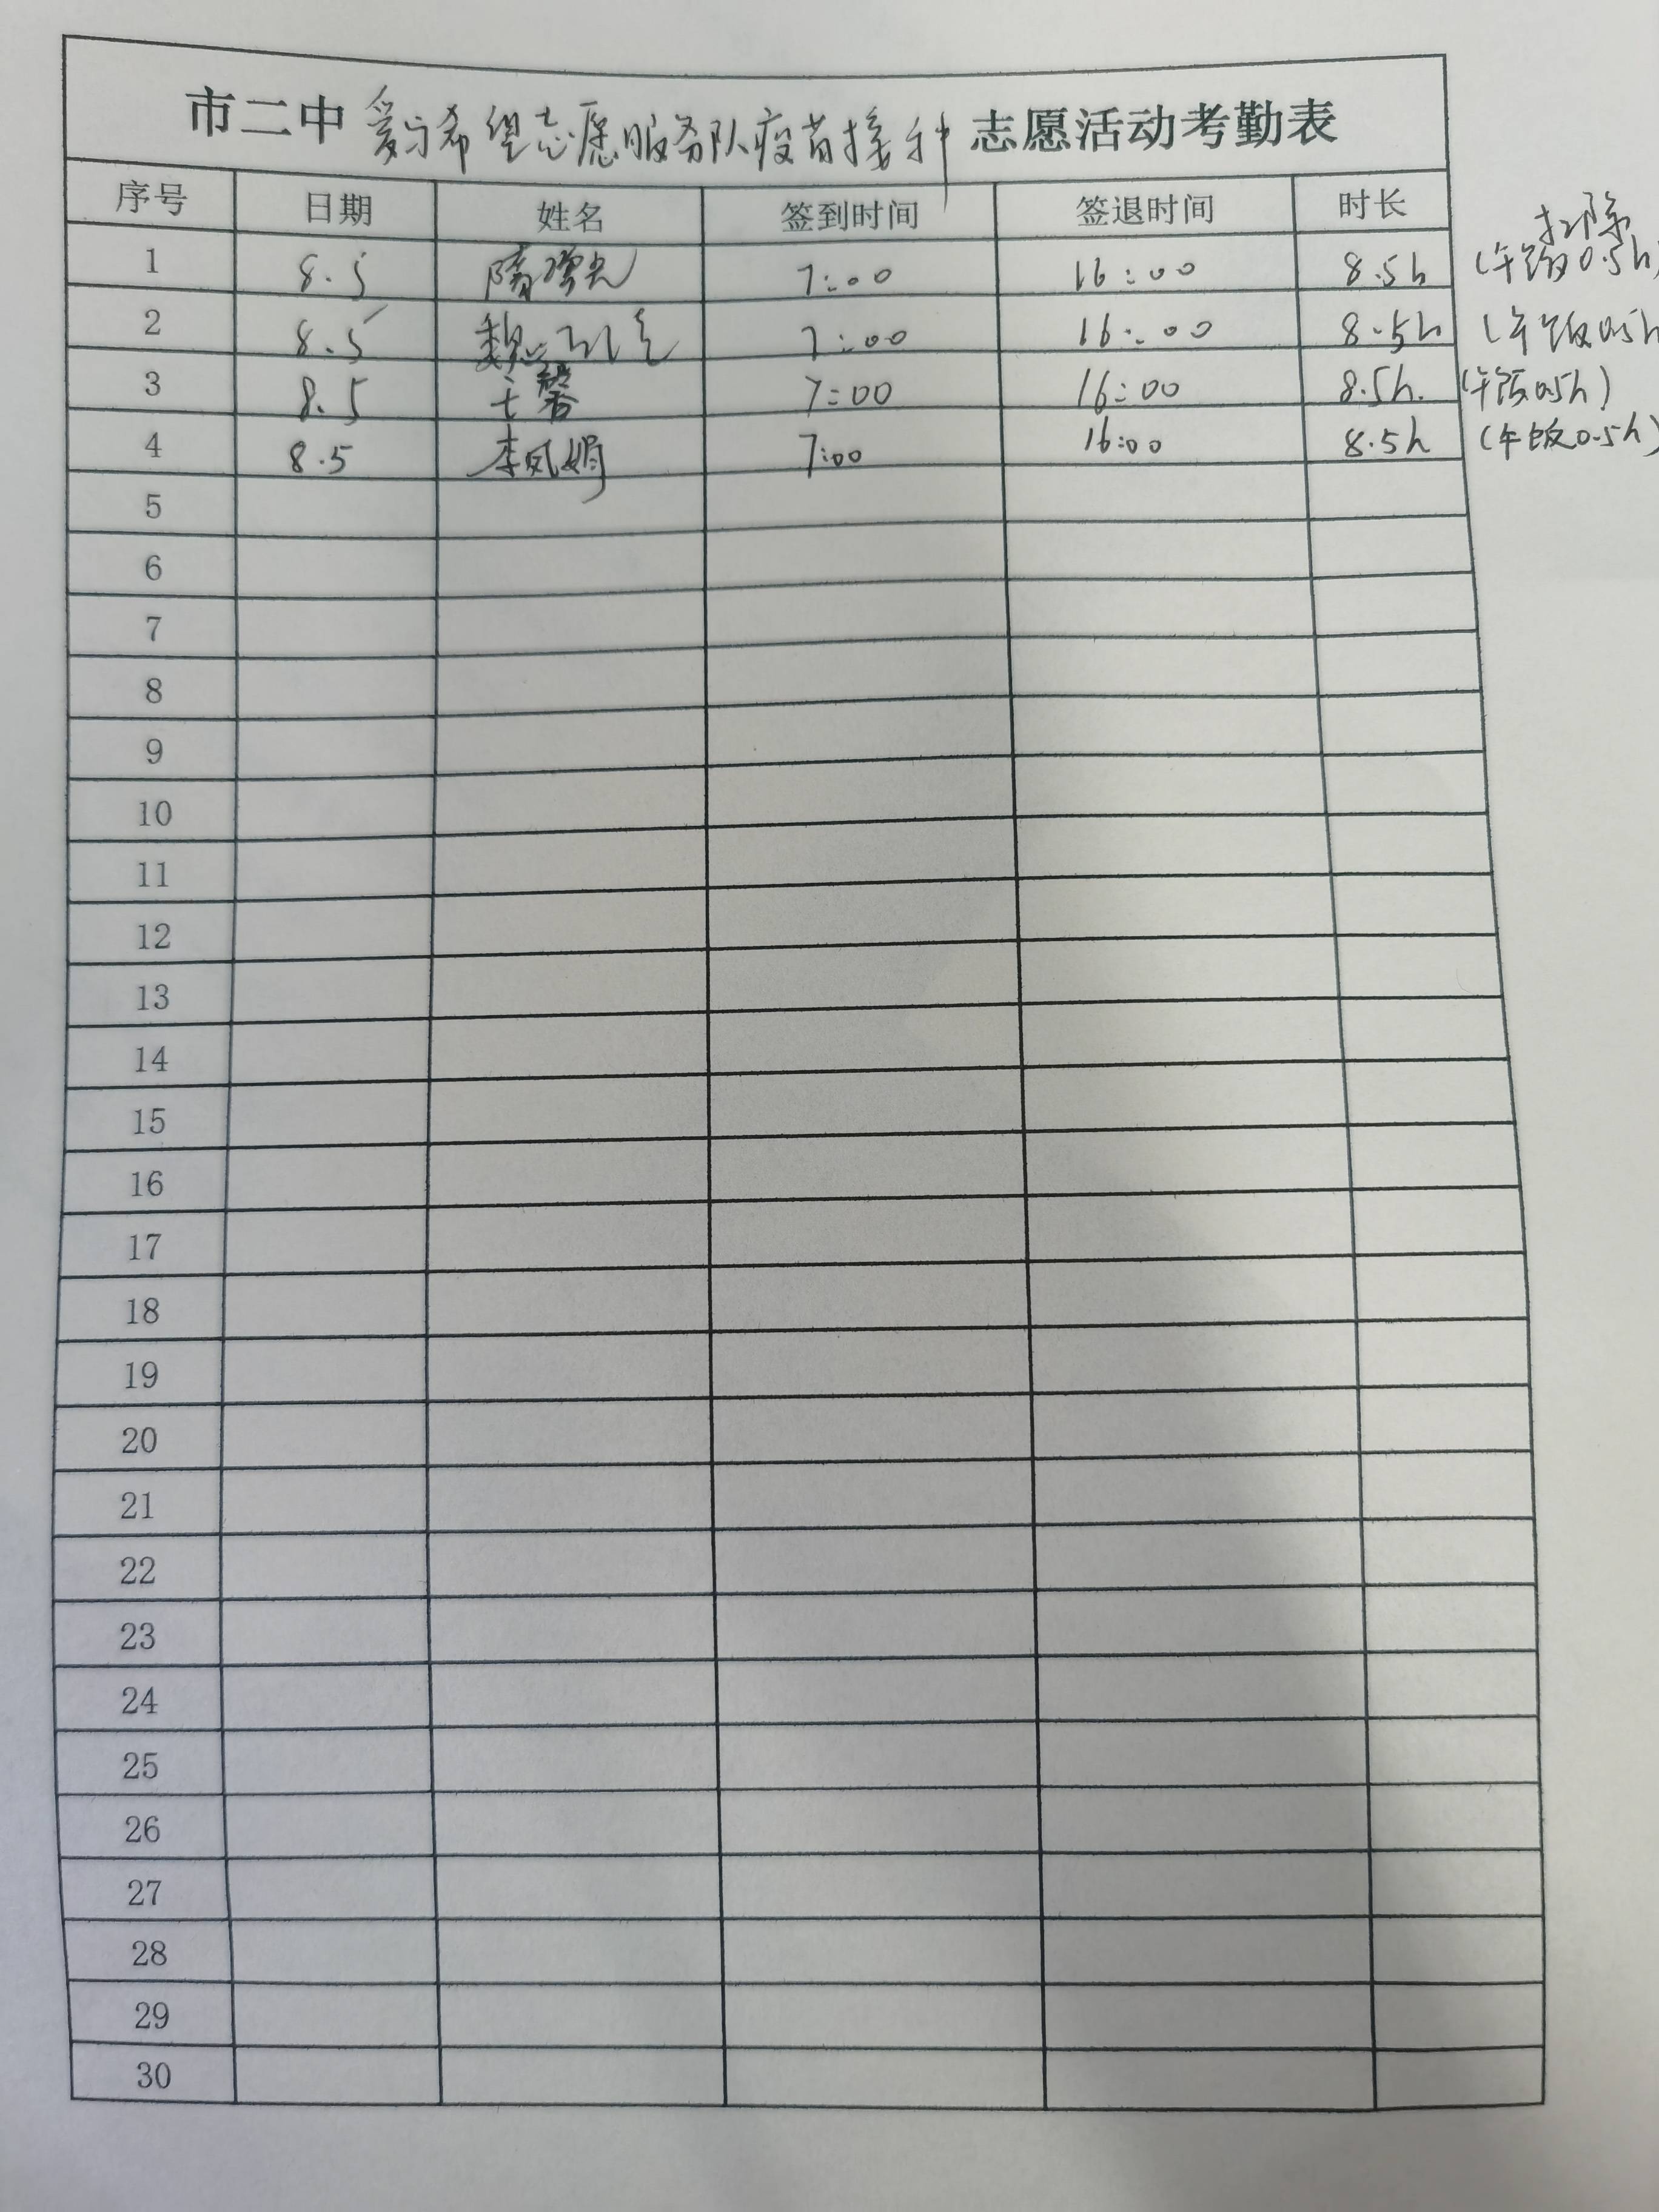 市二中爱与希望志愿服务队疫苗接种志愿活动考勤表
序号 日期 姓名 签到时间 签退时间 时长
扣除
1 8.5 隋 光 7:00 16:00 8.5h (午饭0.5h)
2 8.5 魏 7:00 16:00 8.5h (午饭0.5h
3 8.5 王馨 7:00 16:00 8.5h. (午饭0.5h)
4 8.5 李凤娟 7:00 16:00 8.5h (午饭0.5h)
5
6
7
8
9
10
11
12
13
14
15
16
17
18
19
20
21
22
23
24
25
26
27
28
29
30